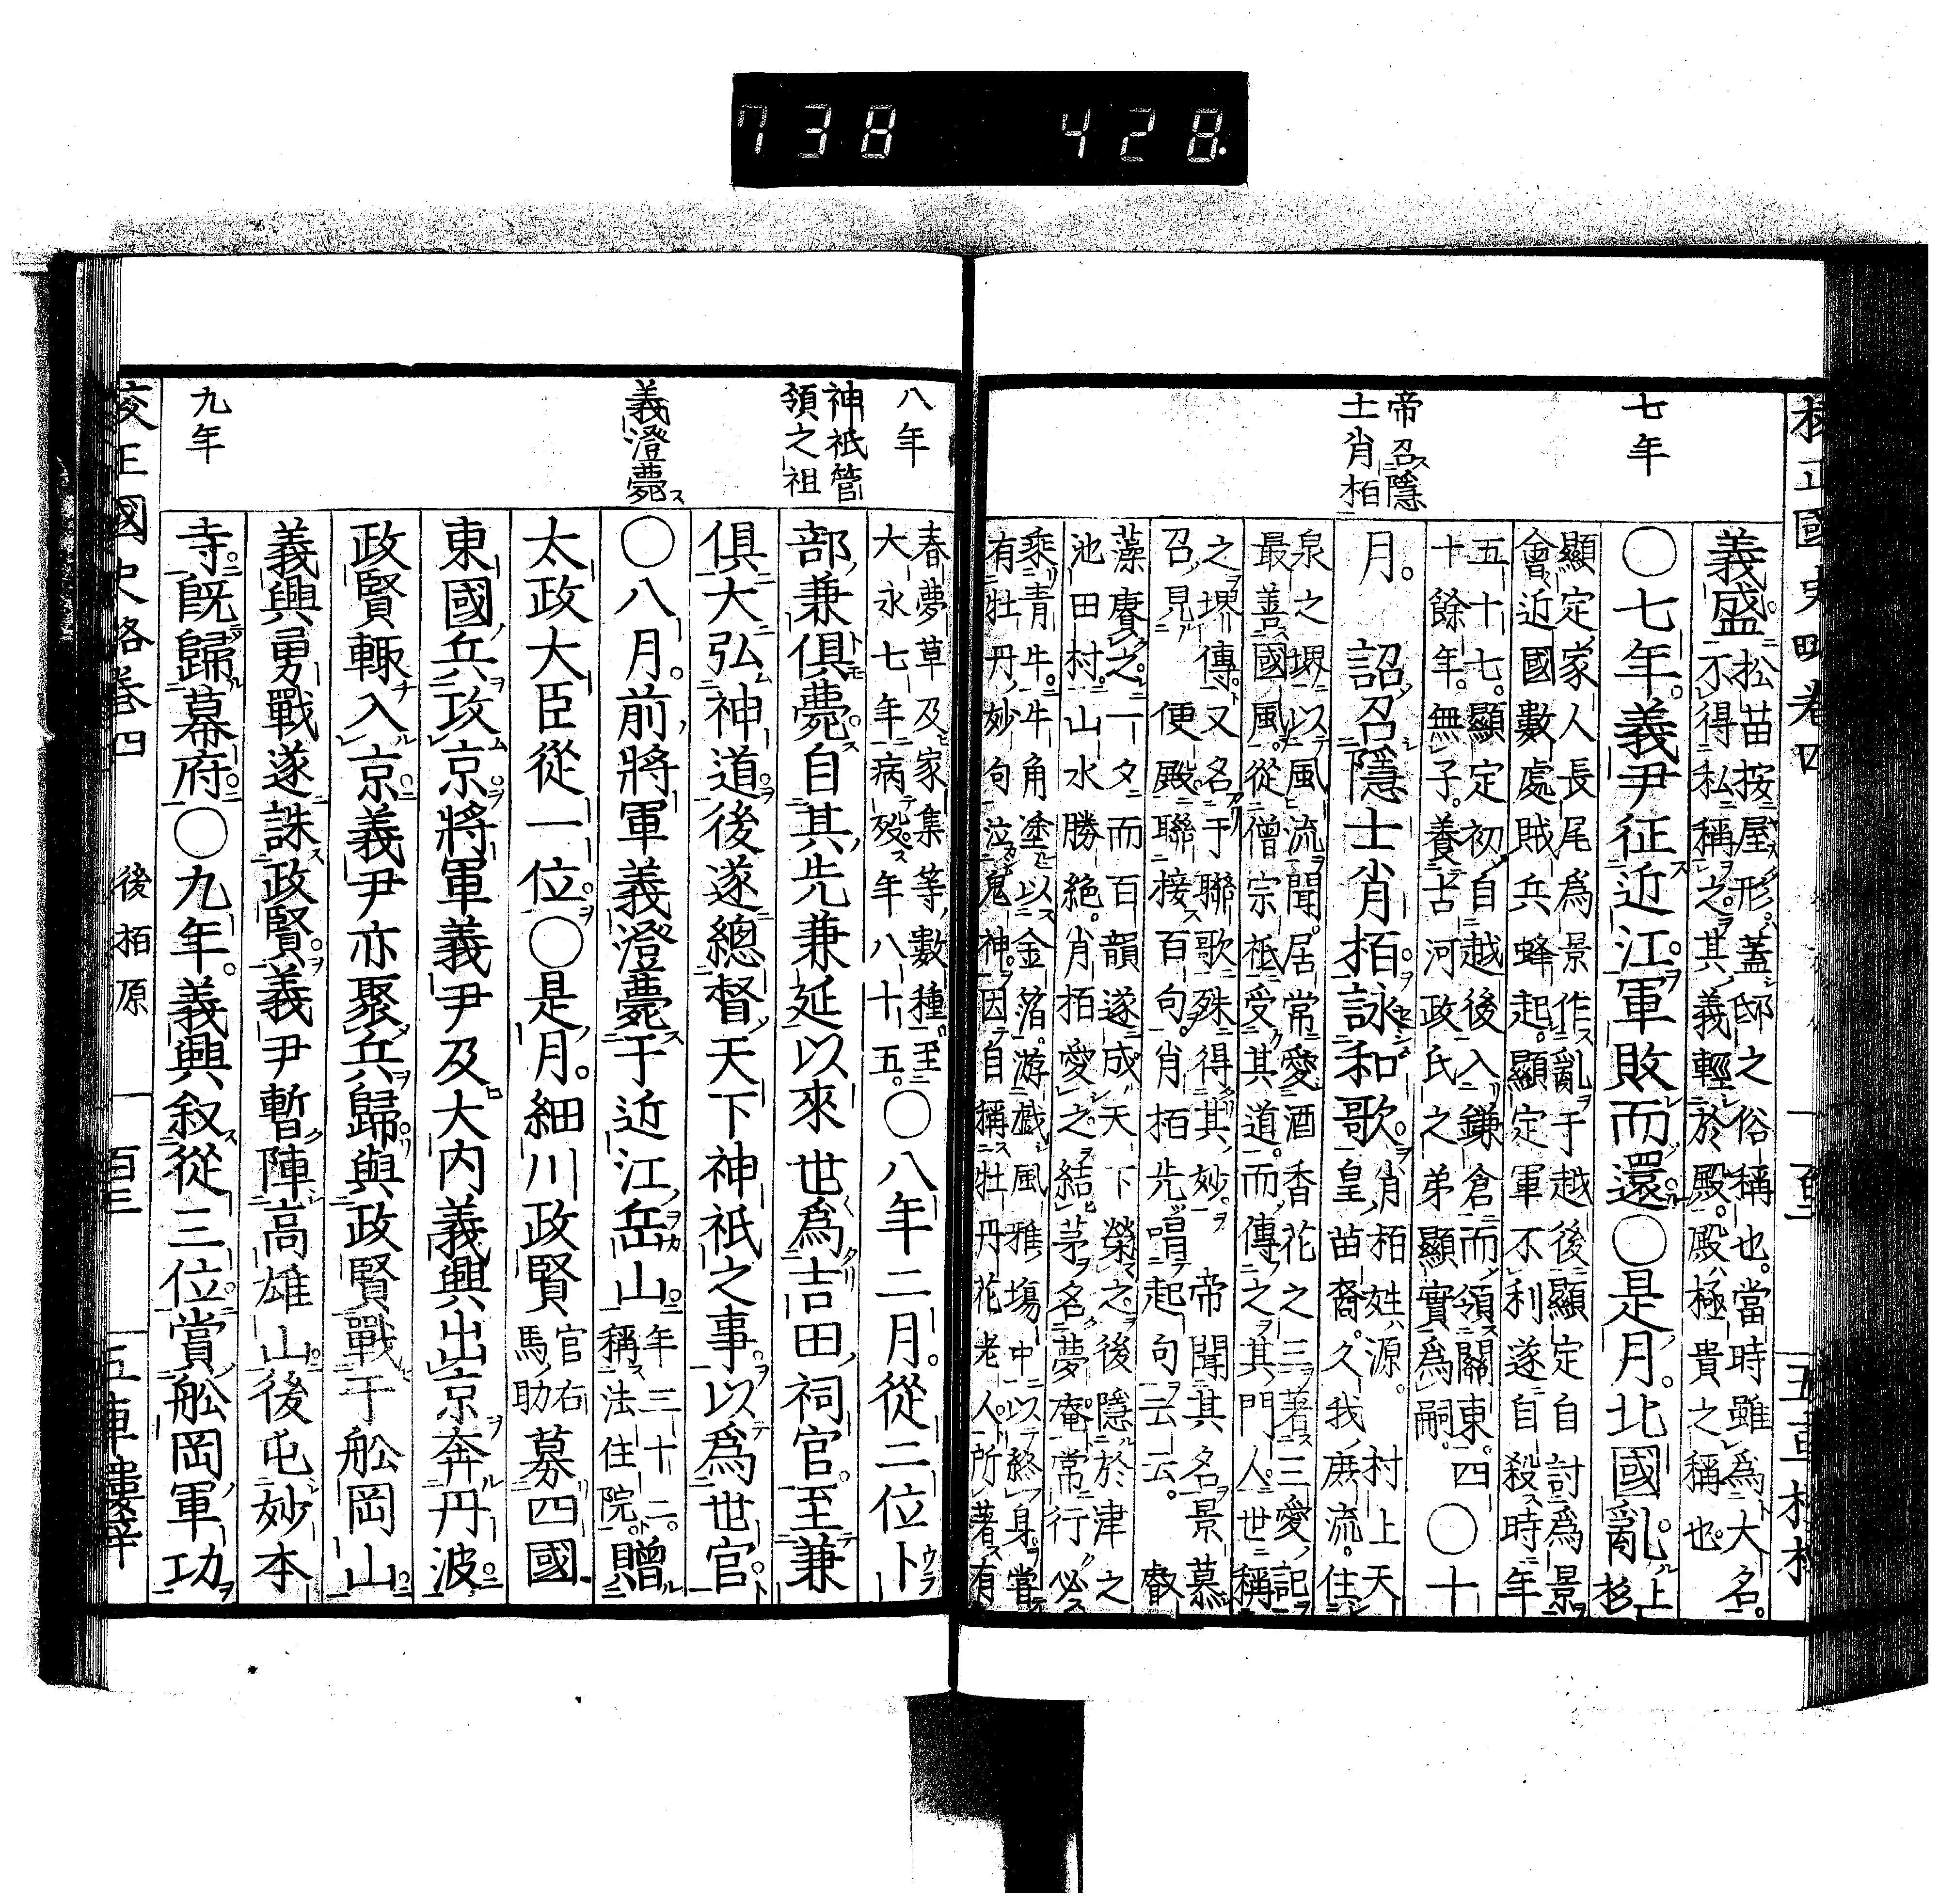 738 428
校正國史略卷四
七年
帝召隱
士肖柏
義盛
松苗按屋形蓋邸之俗稱也當時雖爲大名
不得私稱之其義輕於殿殿極貴之稱也
〇七年義尹征近江軍敗而還〇是月北國亂
上
杉
顯定家人長尾爲景作亂于越後顯定自討爲景
會近國數處賊兵蜂起顯定軍不利遂自殺時年
五十七顯定初自越後入鎌倉而領關東四
十餘年無子養古河政氏之弟顯實爲嗣
〇十
月 詔召隱士肖柏詠和歌
肖柏姓源 村上天
皇苗裔久我庶流住
泉之堺以風流聞居常愛酒香花之三著三愛記
最善國風從僧宗祗受其道而傳之其門人世稱
之堺傳又名于聯歌殊得其妙 帝聞其名景慕
召見 便殿聯接百句肖柏先唱起句云云 叡
藻賡之一夕而百韻遂成天下榮之後隱於津之
池田村山水勝絶肖柏愛之結茅名夢庵常行必
乘青牛牛角塗以金箔游戲風雅塲中以終身嘗
有牡丹妙句泣鬼神因自稱牡丹花老人所著有
八年
神祇管
領之祖
義澄薨
九年
春夢草及家集等數種至
大永七年病殁年八十五
〇八年二月從二位卜
部兼俱薨自其先兼延以來世爲吉田祠官至兼
俱大弘神道後遂總督天下神祇之事以爲世官
〇八月前將軍義澄薨于近江岳山
年三十二
稱法住院
贈
太政大臣從一位〇是月細川政賢
官右
馬助
募四國
東國兵攻京將軍義尹及大内義興出京奔丹波
政賢輙入京義尹亦聚兵歸與政賢戰于舩岡山
義興勇戰遂誅政賢義尹暫陣高雄山後屯妙本
寺旣歸幕府〇九年義興叙從三位賞舩岡軍功
校正國史略卷四 後柏原 百三 五車樓梓